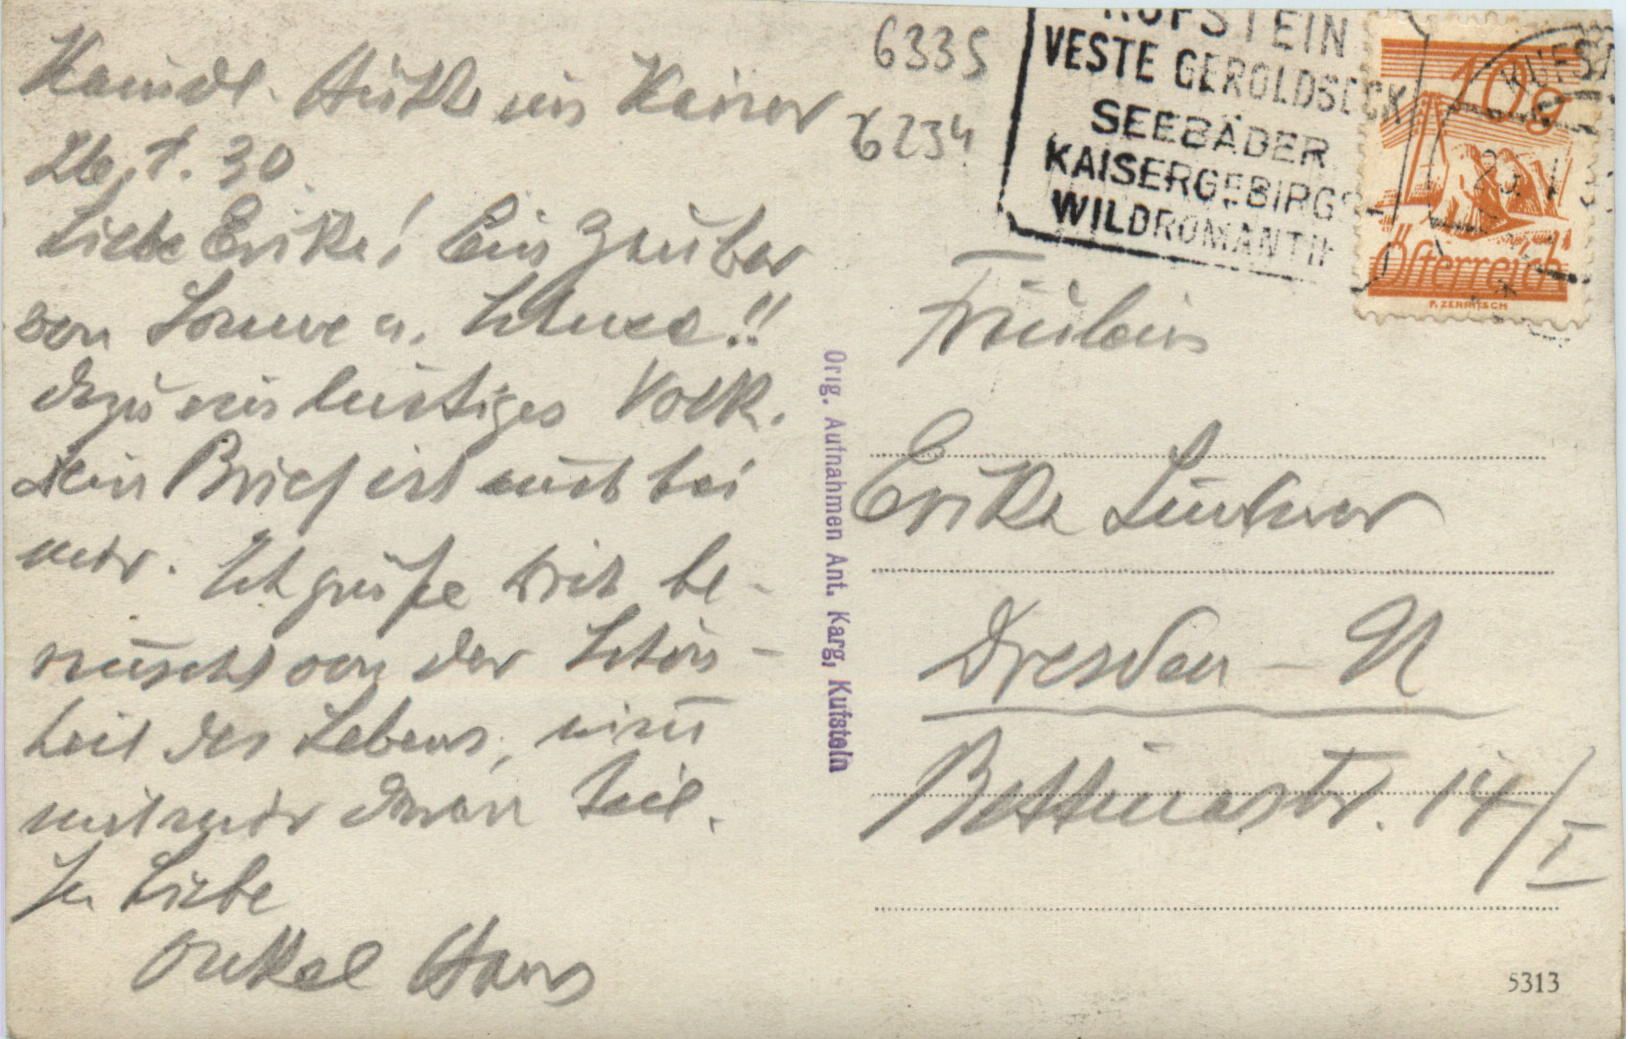 Kaindl. Hütte im Kaiser
26.1.30
Liebe Erika! Ein Zauber
von Sonne u. Schnee!!
dazu ein lustiges Volk.
Dein Brief ist auch bei
mir. Ich grüße Dich be-
rauscht von der Schön-
heit des Lebens, nimm
mit mir daran Teil.
In Liebe
Onkel Hans
6335
6234
KUFSTEIN
VESTE GEROLDSECK
SEEBÄDER
KAISERGEBIRG
WILDROMANTI
KUFST
10g
Österreich
Orig. Aufnahmen Ant. Karg, Kufstein
Fräulein
Erika Lindner
Dresden - N
Bettinastr. 14/I
5313